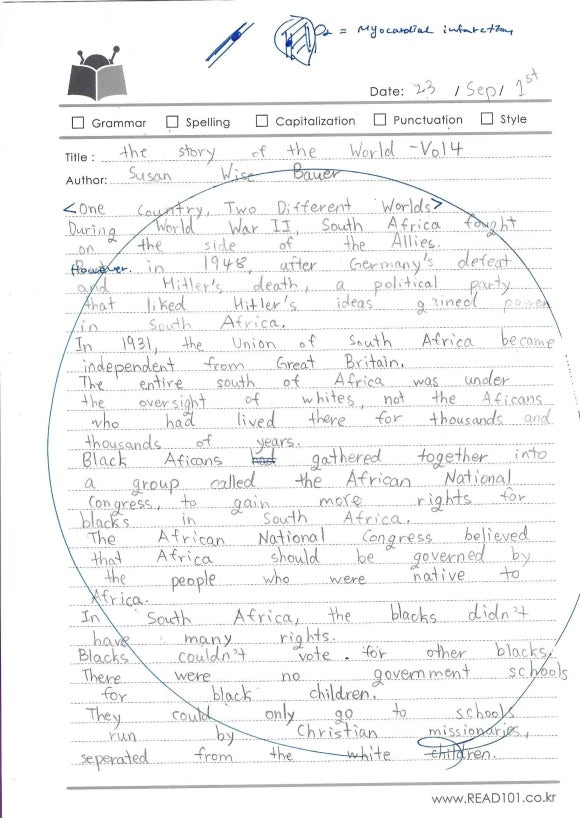 O2 = Myocardial infarction
Date: 23 / Sep / 1st
Grammar Spelling Capitalization Punctuation Style
Title : the story of the World - Vol 4
Author: Susan Wise Bauer
<One Country, Two Different Worlds>
During World War II, South Africa fought
on the side of the Allies.
However. in 1948, after Germany's defeat
and Hitler's death, a political party
that liked Hitler's ideas gained power
in South Africa.
In 1931, the Union of South Africa became
independent from Great Britain.
The entire south of Africa was under
the oversight of whites, not the Aficans
who had lived there for thousands and
thousands of years.
Black Aficans had gathered together into
a group called the African National
Congress, to gain more rights for
blacks in South Africa.
The African National Congress believed
that Africa should be governed by
the people who were native to
Africa.
In South Africa, the blacks didn't
have many rights.
Blacks couldn't vote . for other blacks.
There were no government schools
for black children.
They could only go to schools
run by Christian missionaries,
seperated from the white children.
www.READ101.co.kr